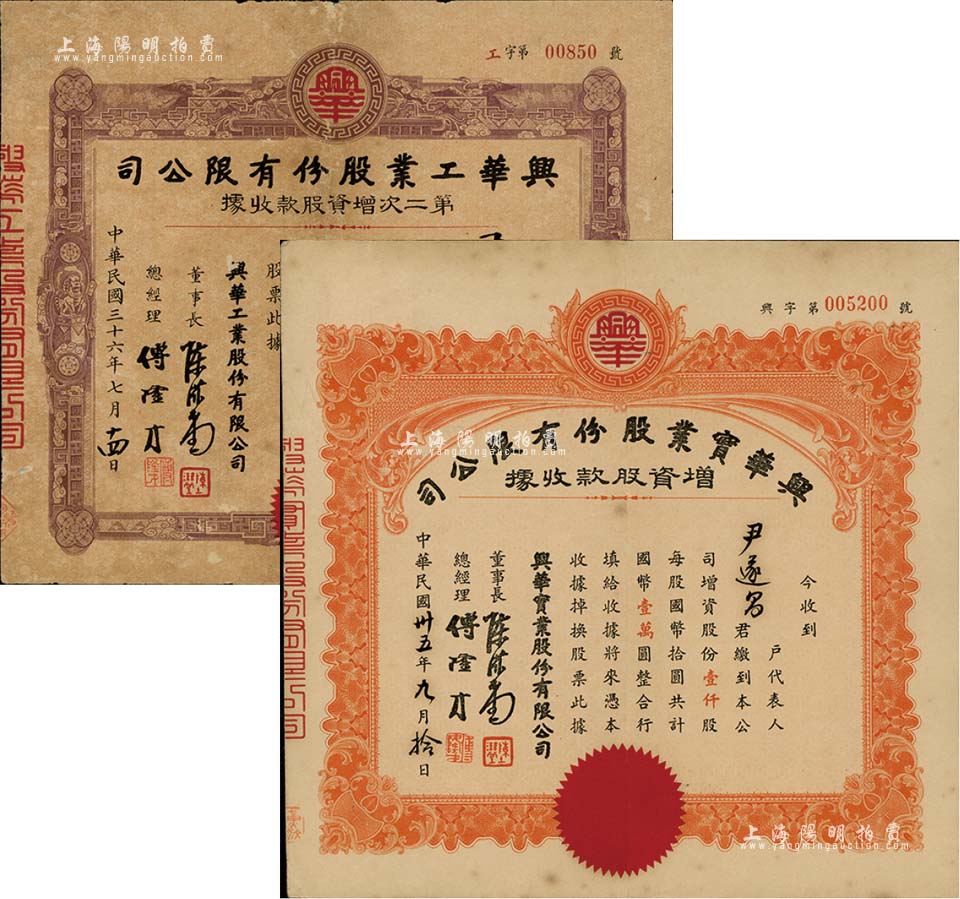 上海陽明拍賣
www.yangmingauction.com
工字第 00850 號
興華工業股份有限公司
第二次增資股款收據
股票此據
興華工業股份有限公司
董事長
總經理 傅
中華民國三十六年七月十四日
興字第 005200 號
興華實業股份有限公司
增資股款收據
今收到
戶代表人
尹遂昌 君繳到本公
司增資股份壹仟股
每股國幣拾圓共計
國幣壹萬圓整合行
填給收據將來憑本
收據掉換股票此據
興華實業股份有限公司
董事長
總經理 傅
中華民國卅五年九月拾日
上海陽明拍賣
www.yangmingauction.com
上海陽明拍賣
www.yangmingauction.com